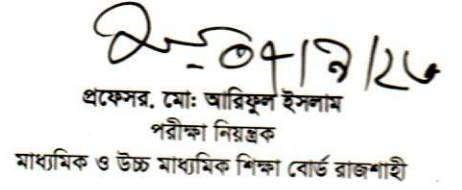 ০৭/৯/২৬
প্রফেসর. মো: আরিফুল ইসলাম
পরীক্ষা নিয়ন্ত্রক
মাধ্যমিক ও উচ্চ মাধ্যমিক শিক্ষা বোর্ড রাজশাহী